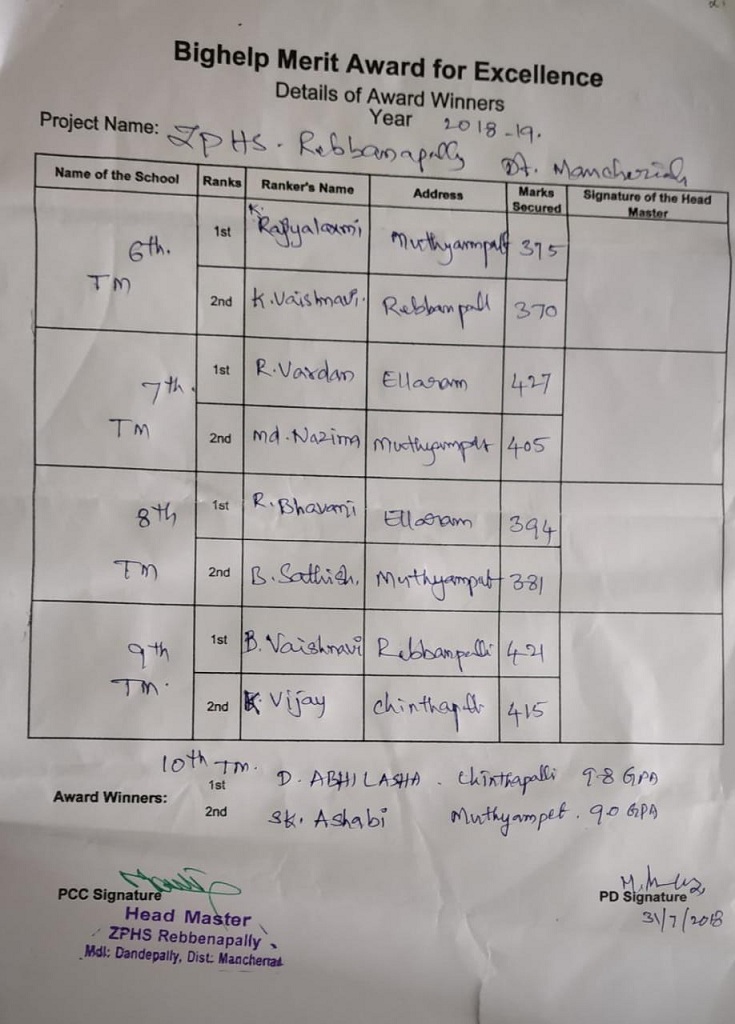 Bighelp Merit Award for Excellence
Details of Award Winners
Year 2018-19.
Project Name: ZPHS. Rebbanapally Dt. Mancherial
Name of the School Ranks Ranker's Name Address Marks Secured Signature of the Head Master
6th. TM 1st K. Rajyalaxmi Muthyampet 375
2nd K. Vaishnavi. Rebbanpall 370
7th. TM 1st R. Vardan Ellaram 427
2nd Md. Nazima Muthyampet 405
8th TM 1st R. Bhavani Ellaram 394
2nd B. Sathish. Muthyampet 381
9th TM. 1st B. Vaishnavi Rebbanpalli 421
2nd K. Vijay Chinthapalli 415
10th TM.
Award Winners:
1st D. ABHILASHA. Chinthapalli 9.8 GPA
2nd SK. Ashabi Muthyampet. 9.0 GPA
PCC Signature
Head Master
ZPHS Rebbenapally
Mdl: Dandepally, Dist: Mancherial
PD Signature
31/7/2018